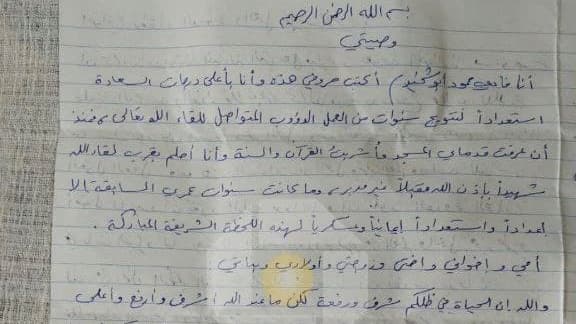 بسم الله الرحمن الرحيم
وصيتي
أنا فادي محمود أبو شخيدم أكتب حروفي هذه وأنا بأعلى درجات السعادة
استعداداً لتتويج سنوات من العمل الدؤوب المتواصل للقاء الله تعالى، فمنذ
أن عرفت قدماي المسجد وأشربتُ القرآن والسنة وأنا أحلم بقرب لقاء الله
شهيداً بإذن الله مقبلاً غير مدبر، وما كانت سنوات عمري السابقة إلا
إعداداً واستعداداً إيمانياً وعسكرياً لهذه اللحظة الشريفة المباركة.
أمي وإخواني وأختي وزوجتي وأولادي وبناتي
والله إن الحياة في ظلكم شرف ورفعة لكن ما عند الله أشرف وأرفع وأعلى